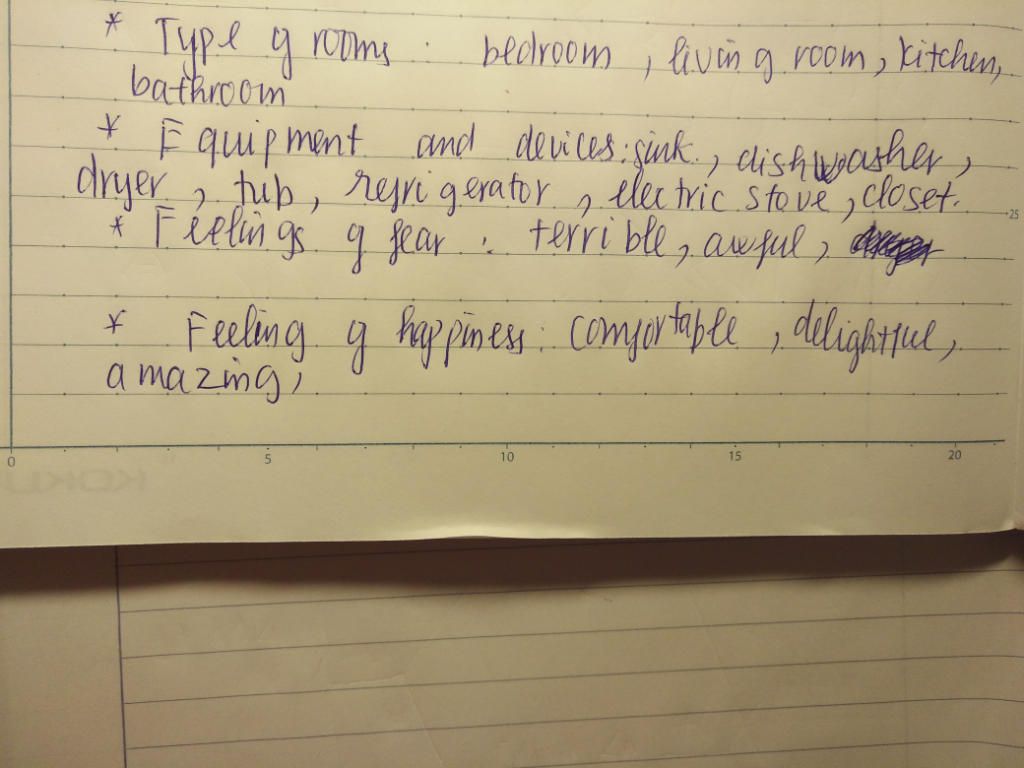 * Type of rooms : bedroom , living room , kitchen,
bathroom
* Equipment and devices : sink , dishwasher ,
dryer , tub , refrigerator , electric stove , closet.
25
* Feelings of fear : terrible , awful ,
* Feeling of happiness : comfortable , delightful ,
amazing ,
0 5 10 15 20